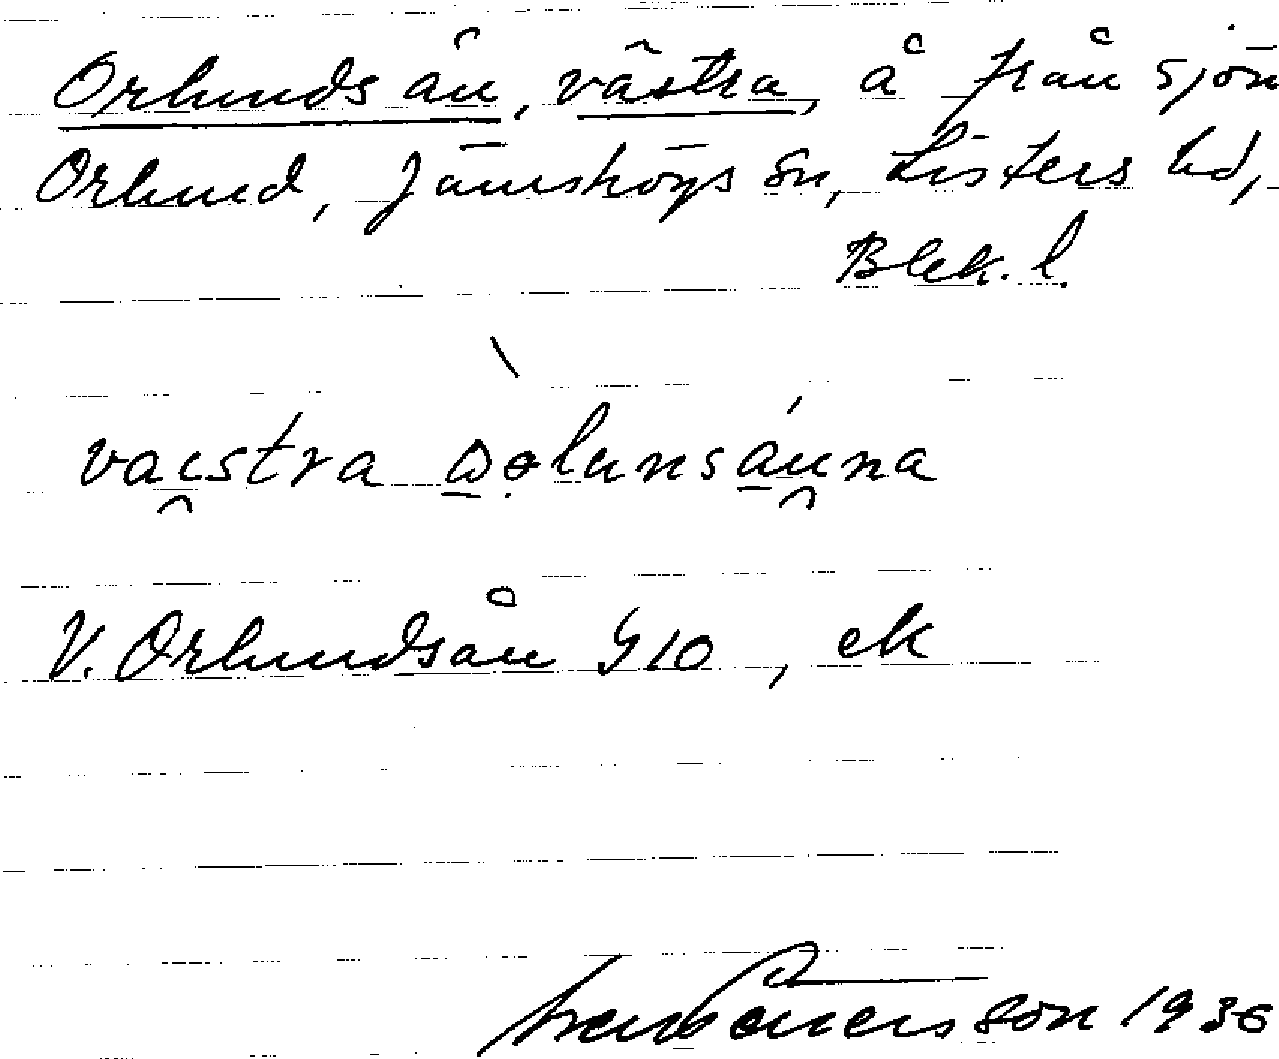 Orlundsån, västra, å från sjön
Orlund, Jämshögs sn, Listers hd,
Blek. l.
vaistra
V. Orlundsån G10, ek
1936